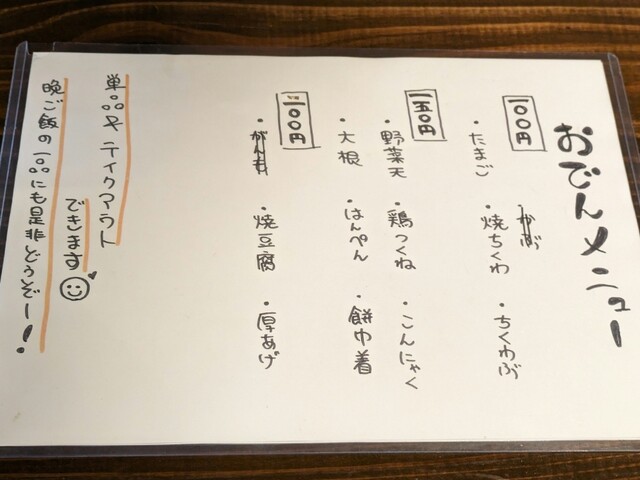 おでんメニュー
一〇〇円
かぶ
・たまご ・焼ちくわ ・ちくわぶ
一五〇円
・野菜天 ・鶏つくね ・こんにゃく
・大根 ・はんぺん ・餅巾着
二〇〇円
・がんも ・焼豆腐 ・厚あげ
単品やテイクアウト
できます
晩ご飯の一品にも是非どうぞー!